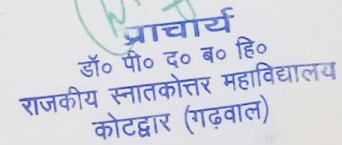 प्राचार्य
डॉ० पी० द० ब० हि०
राजकीय स्नातकोत्तर महाविद्यालय
कोटद्वार (गढ़वाल)